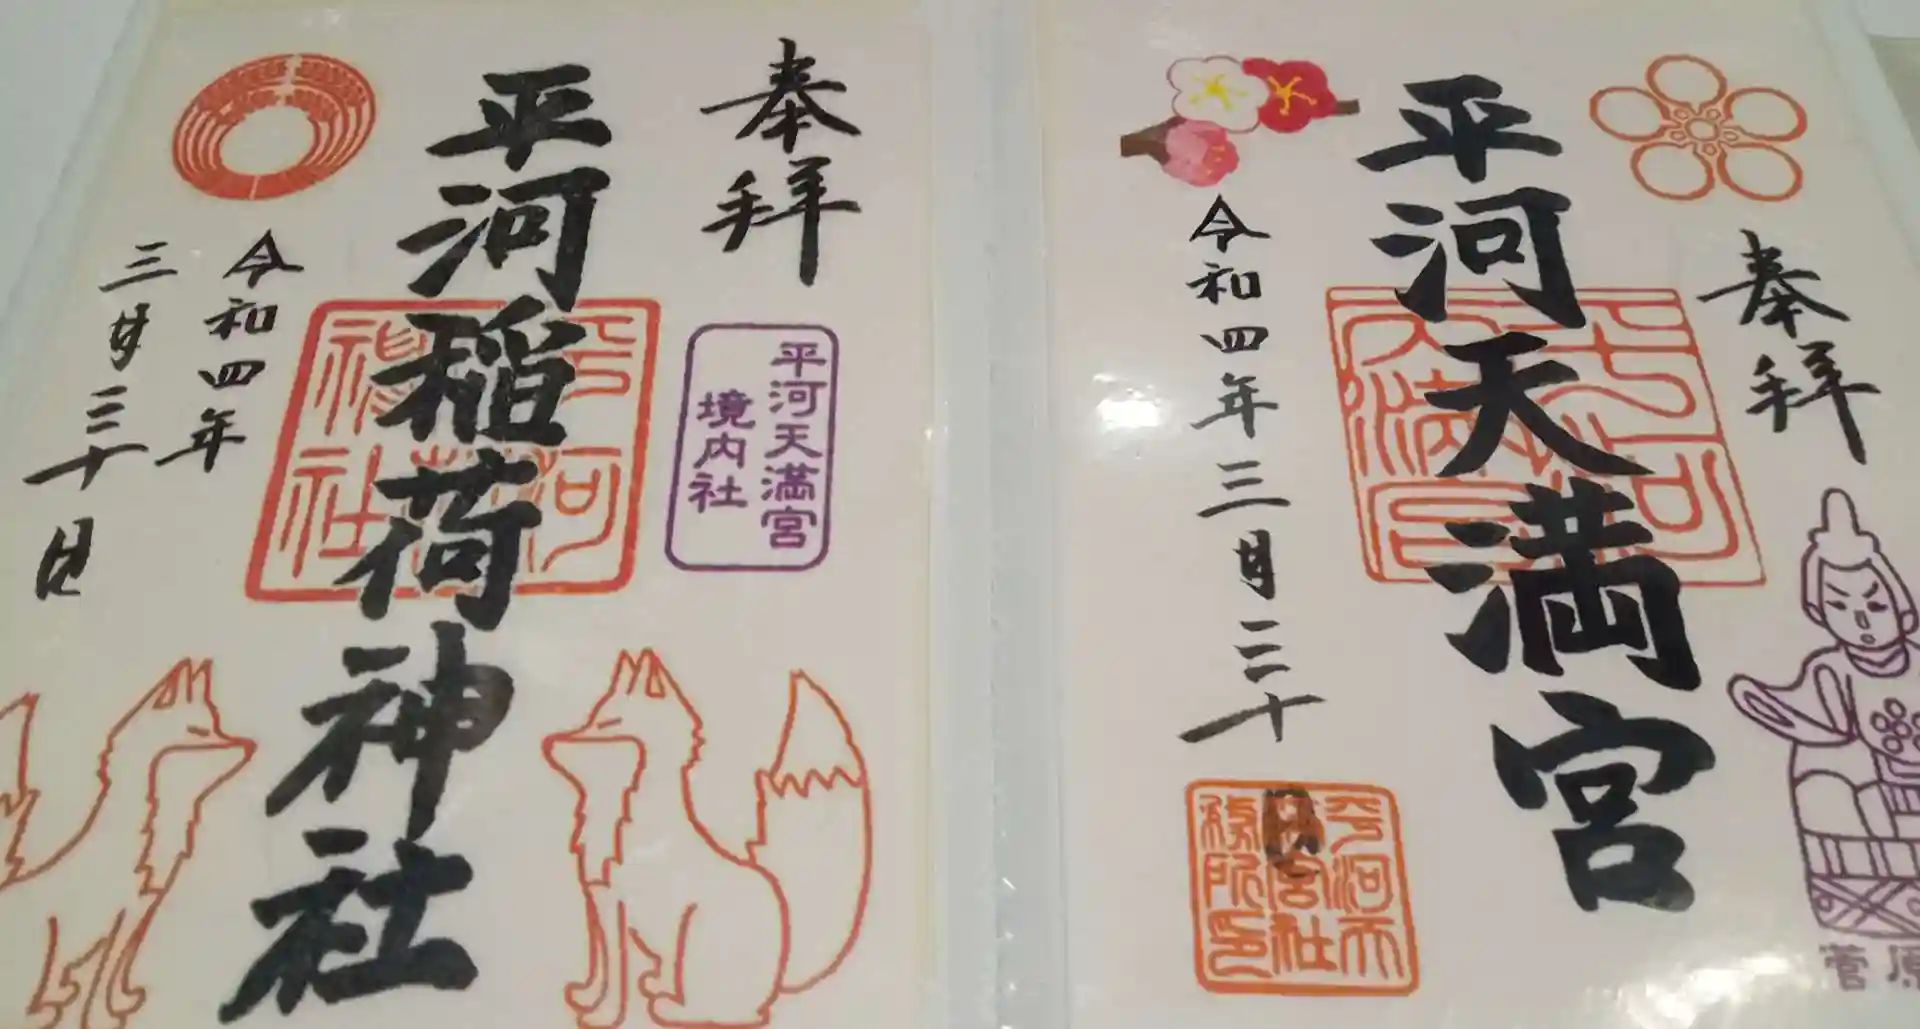 奉拝
平河天満宮
令和四年三月三十日
平河天
満宮社
務所印
菅原
奉拝
平河天満宮
境内社
平河稲荷神社
令和四年
三月三十日